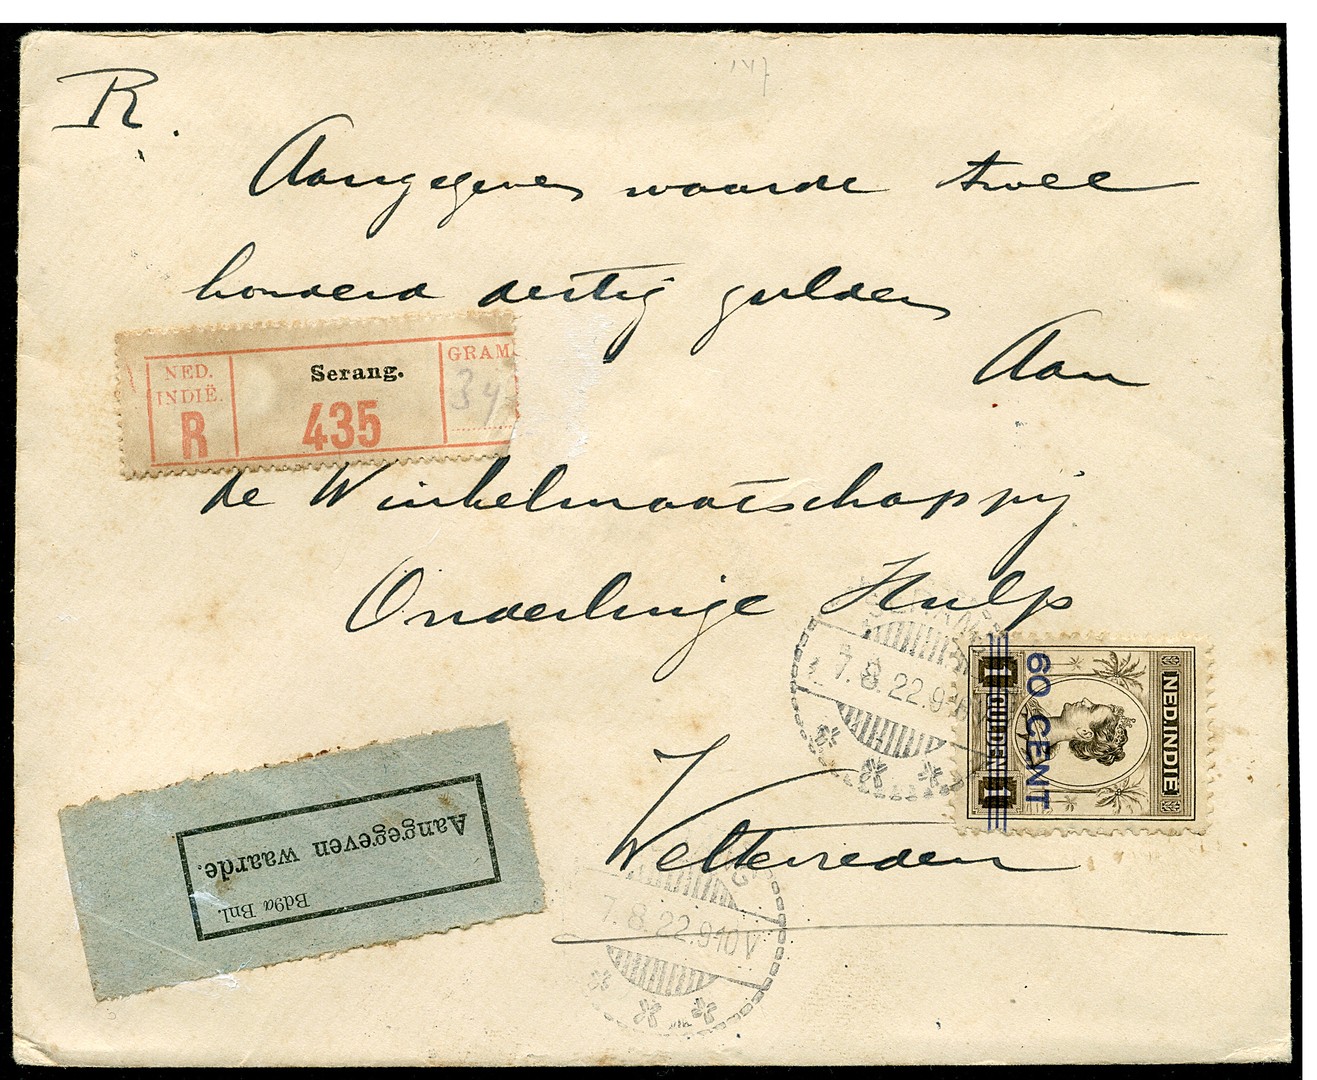 R.
Aangegeven waarde twee
honderd dertig gulden
Aan
NED.
INDIË.
R
Serang.
435
GRAM
34
de Winkelmaatschappij
Onderlinge Hulp
Weltevreden
7.8.22.9-10V
7.8.22.9-10V
NED. INDIË
60 CENT
1 GULDEN 1
Aangegeven waarde.
Bd9a Bnl.